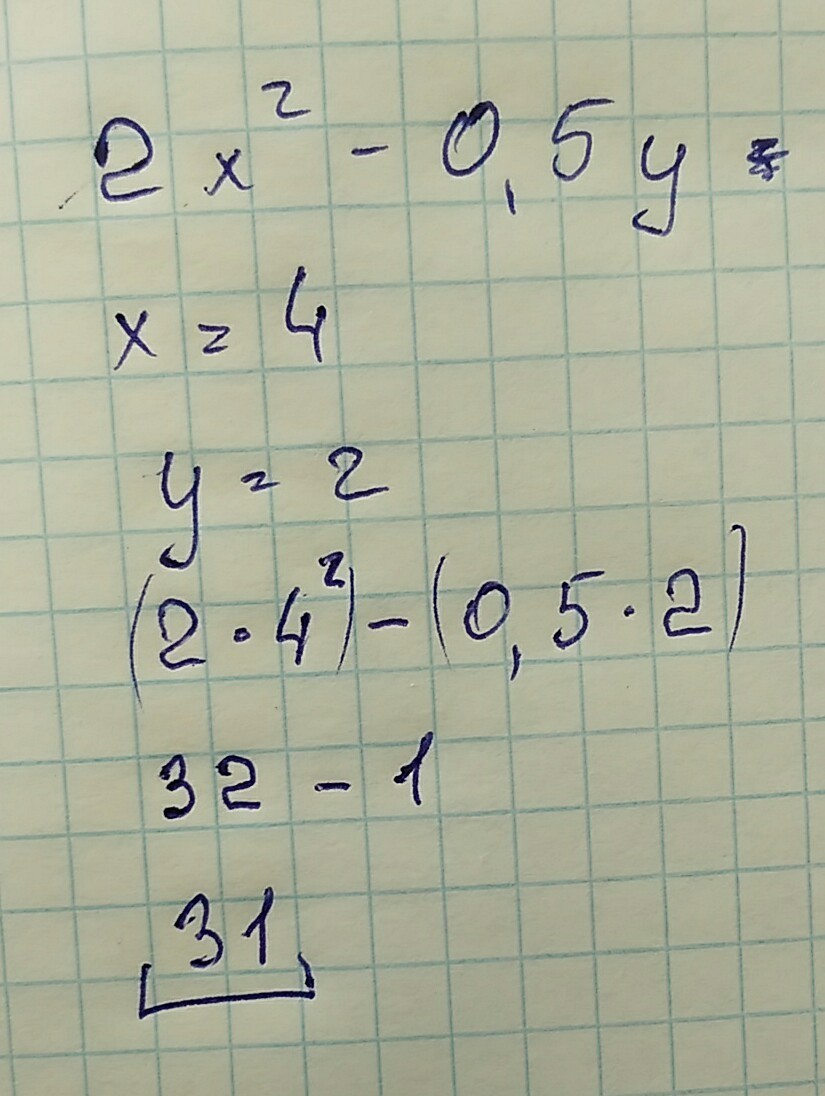 2x² - 0,5y =
x = 4
y = 2
(2·4²) - (0,5·2)
32 - 1
31